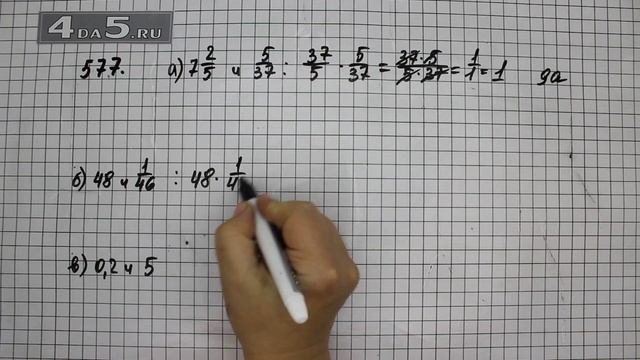 4DA5.RU
577. а) 7 2/5 и 5/37 : 37/5 · 5/37 = 37·5/5·37 = 1/1 = 1 да
б) 48 и 1/46 : 48 · 1/4
в) 0,2 и 5